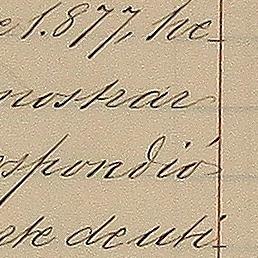 e 1.877, he-
nostrar
spondió
rte de uti-